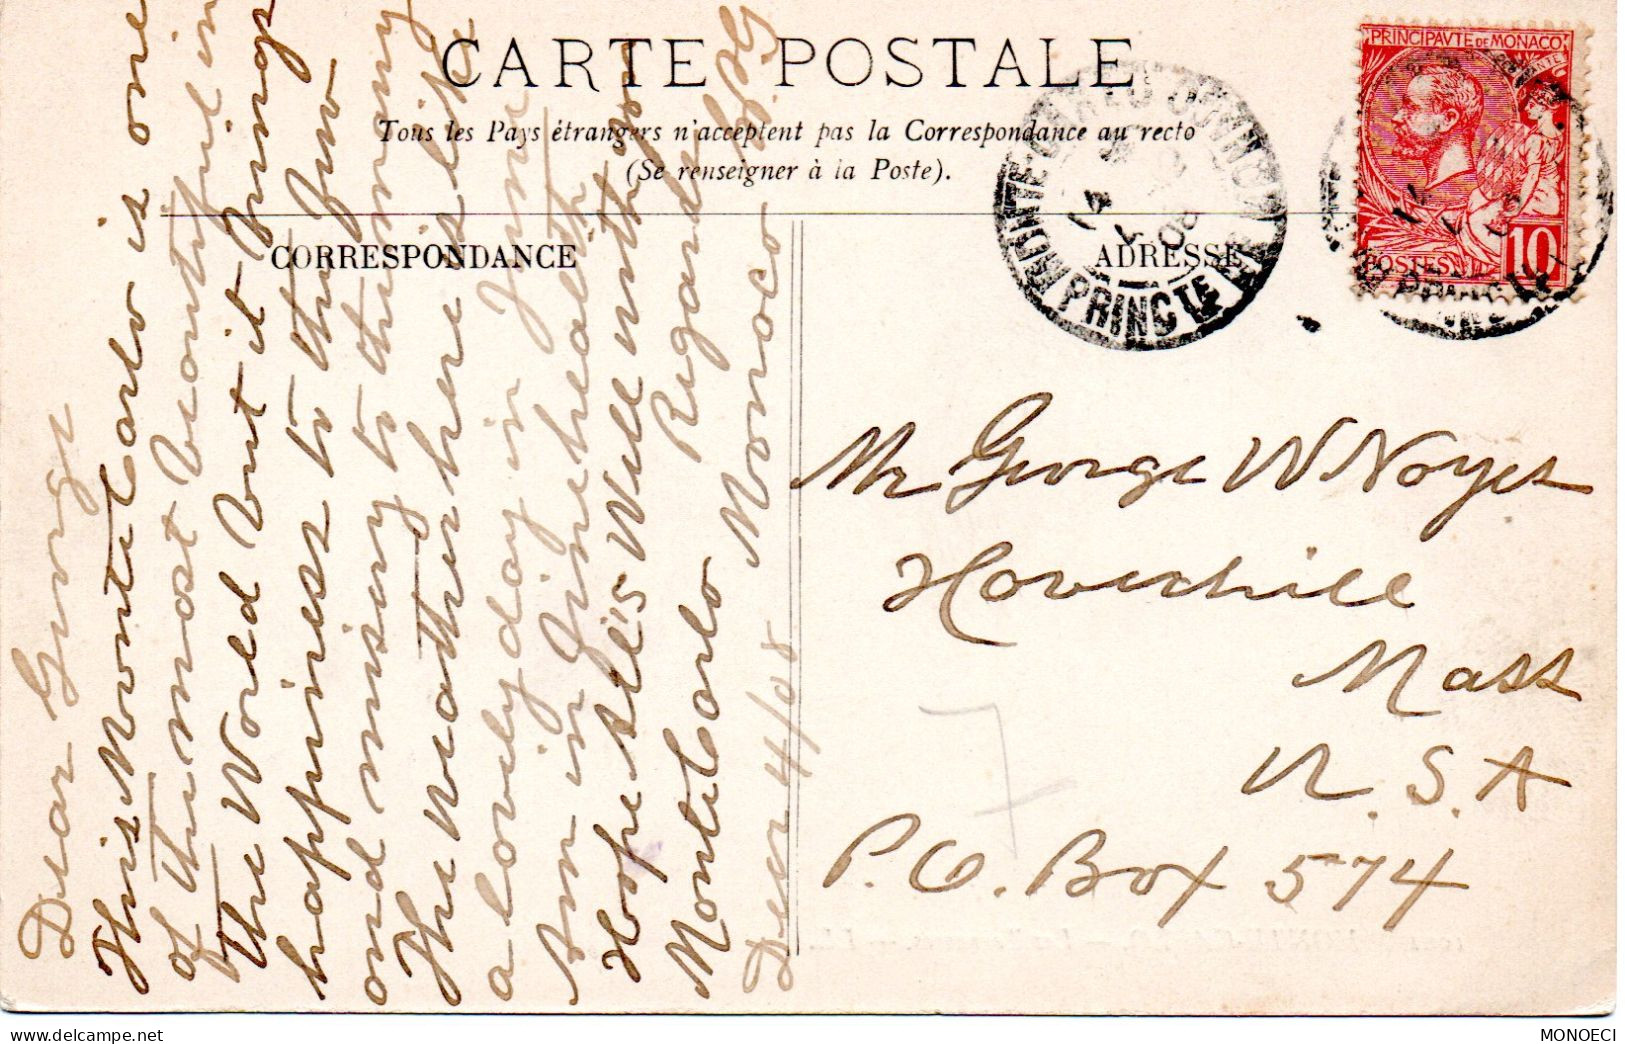 CARTE POSTALE
Tous les Pays étrangers n'acceptent pas la Correspondance au recto
(Se renseigner à la Poste).
CORRESPONDANCE
ADRESSE
PRINCIPAVTE DE MONACO
POSTES
10
MONTE-CARLO
PRINCTE
14
08
Dear George
This Monte Carlo is one
of the most beautiful in
the World but it brings
happiness to the few
and misery to the many
The weather here is like
a lovely day in June
Am in fine health
Hope all is Well with you
Regards
Monte Carlo Monaco
Decr 4/08
Mr George W Noyes
Haverhill
Mass
U.S.A
P.O. Box 574
7
MONOECI